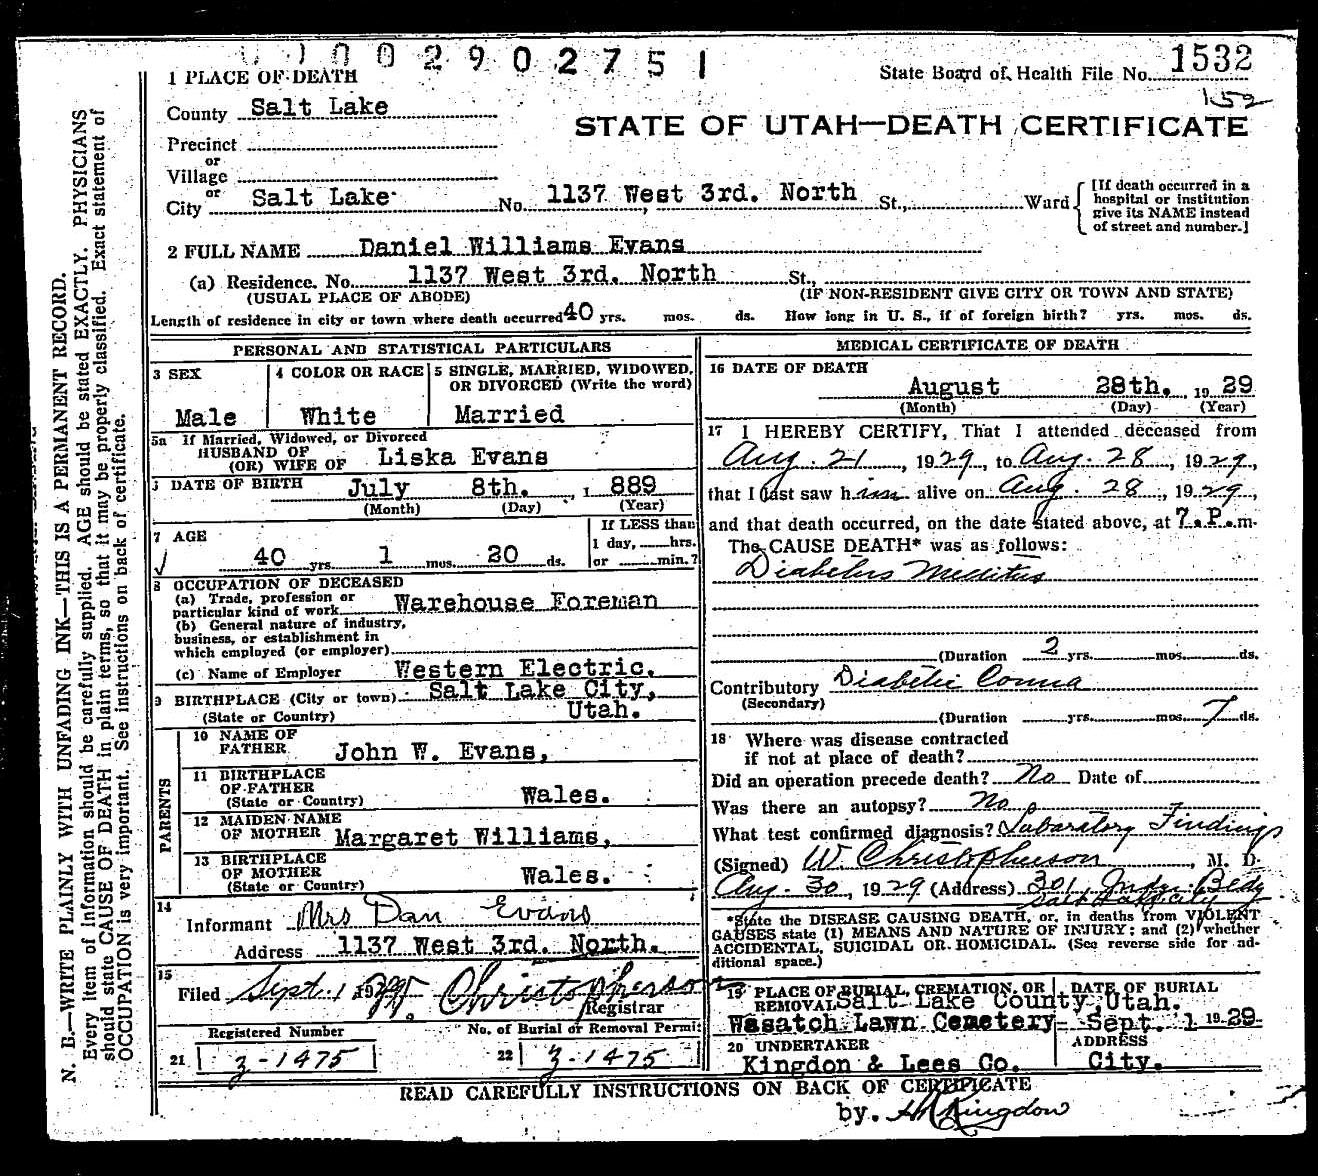 0 1 0 0 2 9 0 2 7 5 1
1 PLACE OF DEATH
State Board of Health File No. 1532
152
County Salt Lake
STATE OF UTAH—DEATH CERTIFICATE
Precinct
or
Village
or
City Salt Lake No. 1137 West 3rd. North St., Ward
[If death occurred in a hospital or institution give its NAME instead of street and number.]
2 FULL NAME Daniel Williams Evans
(a) Residence. No. 1137 West 3rd. North St.,
(USUAL PLACE OF ABODE) (IF NON-RESIDENT GIVE CITY OR TOWN AND STATE)
Length of residence in city or town where death occurred 40 yrs. mos. ds. How long in U. S., if of foreign birth? yrs. mos. ds.
PERSONAL AND STATISTICAL PARTICULARS
3 SEX
Male
4 COLOR OR RACE
White
5 SINGLE, MARRIED, WIDOWED, OR DIVORCED (Write the word)
Married
5a If Married, Widowed, or Divorced
HUSBAND OF
(OR) WIFE OF Liska Evans
DATE OF BIRTH July 8th. , 1 889
(Month) (Day) (Year)
7 AGE
40 yrs. 1 mos. 20 ds.
If LESS than
1 day, hrs.
or min.?
8 OCCUPATION OF DECEASED
(a) Trade, profession or
particular kind of work Warehouse Foreman
(b) General nature of industry,
business, or establishment in
which employed (or employer)
(c) Name of Employer Western Electric.
9 BIRTHPLACE (City or town) Salt Lake City,
(State or Country) Utah.
PARENTS
10 NAME OF
FATHER John W. Evans,
11 BIRTHPLACE
OF FATHER
(State or Country) Wales.
12 MAIDEN NAME
OF MOTHER Margaret Williams,
13 BIRTHPLACE
OF MOTHER
(State or Country) Wales.
14
Informant Mrs Dan Evans
Address 1137 West 3rd. North.
15
Filed Sept. 1 1929 Christopherson
Registrar
Registered Number
21 3-1475
No. of Burial or Removal Permit
22 3-1475
MEDICAL CERTIFICATE OF DEATH
16 DATE OF DEATH
August 28th. , 19 29
(Month) (Day) (Year)
17 I HEREBY CERTIFY, That I attended deceased from
Aug. 21 , 1929, to Aug. 28 , 1929,
that I last saw him alive on Aug. 28 , 1929,
and that death occurred, on the date stated above, at 7.P.m.
The CAUSE DEATH* was as follows:
Diabetus Mellitus
(Duration 2 yrs. mos. ds.
Contributory Diabetic Comma
(Secondary)
(Duration yrs. mos. 7 ds.
18 Where was disease contracted
if not at place of death?
Did an operation precede death? No Date of
Was there an autopsy? No
What test confirmed diagnosis? Labaratory Findings
(Signed) W. Christopherson , M. D.
Aug. 30, 1929 (Address) 301 Bldg
Salt Lake City
*State the DISEASE CAUSING DEATH, or, in deaths from VIOLENT
CAUSES state (1) MEANS AND NATURE OF INJURY; and (2) whether
ACCIDENTAL, SUICIDAL OR HOMICIDAL. (See reverse side for ad-
ditional space.)
19 PLACE OF BURIAL, CREMATION, OR
REMOVAL Salt Lake County, Utah.
Wasatch Lawn Cemetery
DATE OF BURIAL
Sept. 1 19 29
20 UNDERTAKER
Kingdon & Lees Co.
ADDRESS
City.
READ CAREFULLY INSTRUCTIONS ON BACK OF CERTIFICATE
by. Kingdon
N. B.—WRITE PLAINLY WITH UNFADING INK—THIS IS A PERMANENT RECORD.
Every item of information should be carefully supplied. AGE should be stated EXACTLY. PHYSICIANS
should state CAUSE OF DEATH in plain terms, so that it may be properly classified. Exact statement of
OCCUPATION is very important. See instructions on back of certificate.